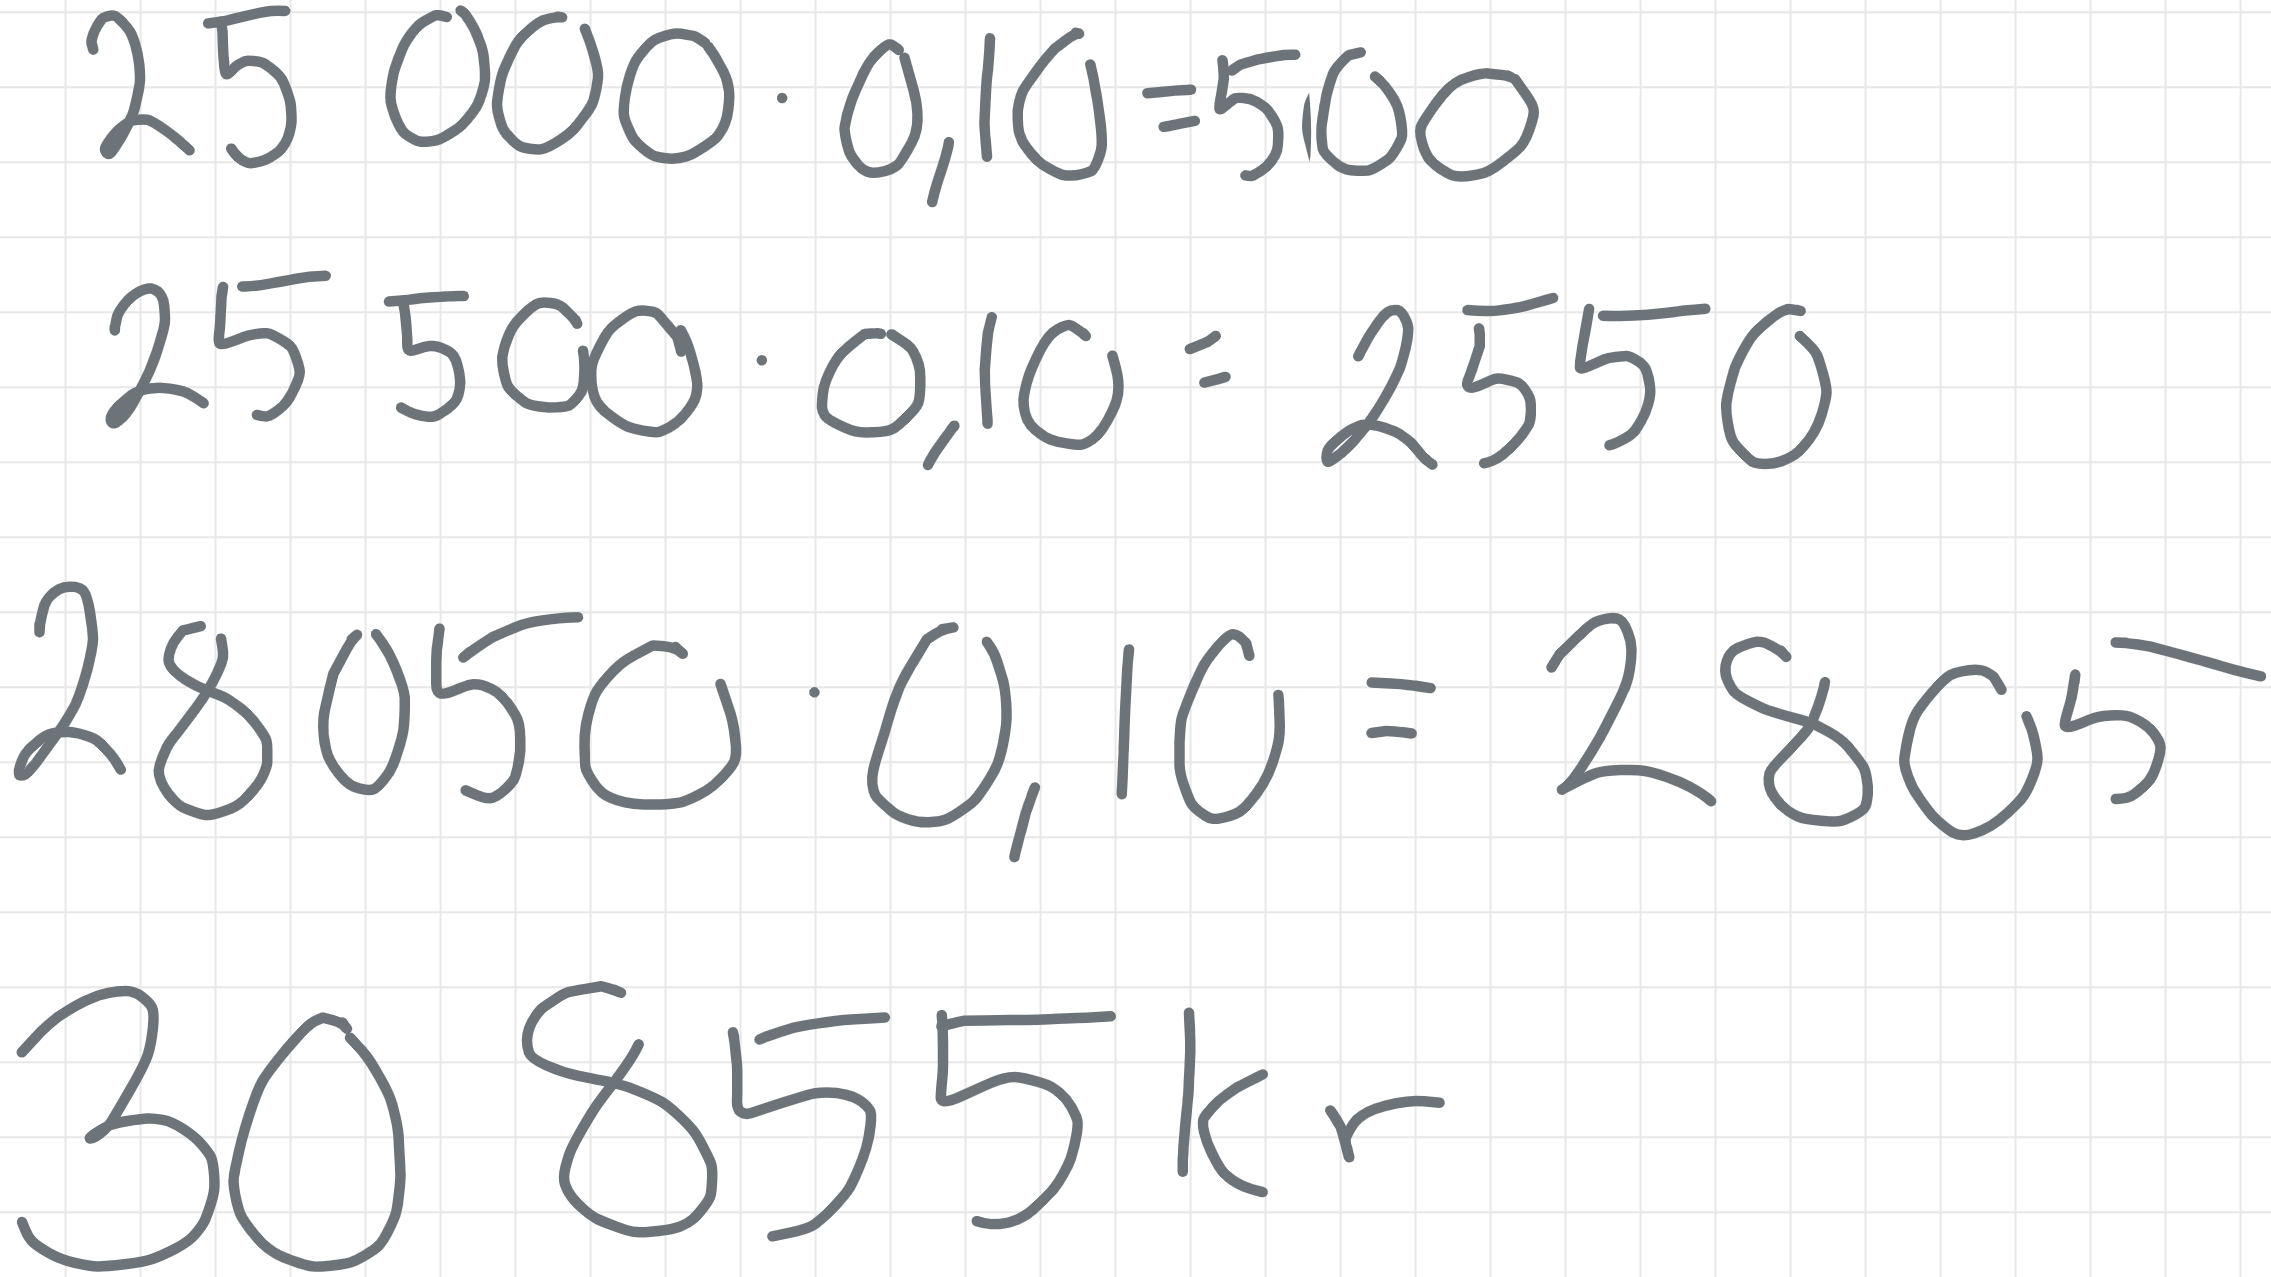 25 000 · 0,10 = 500
25 500 · 0,10 = 2550
28 050 · 0,10 = 2805
30 855 kr